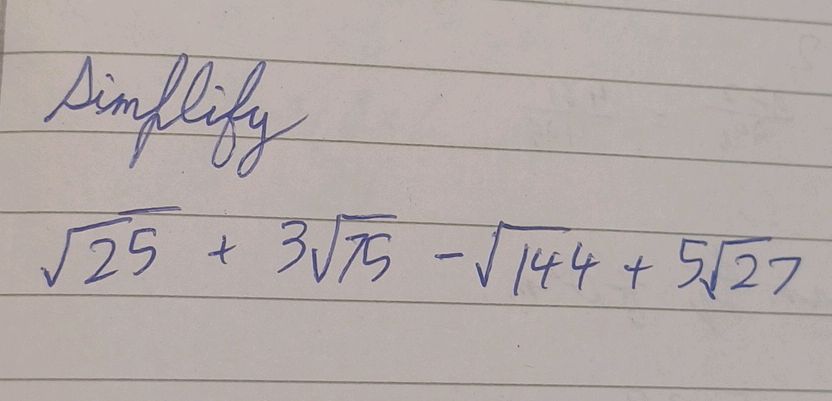 Simplify
√25 + 3√75 - √144 + 5√27